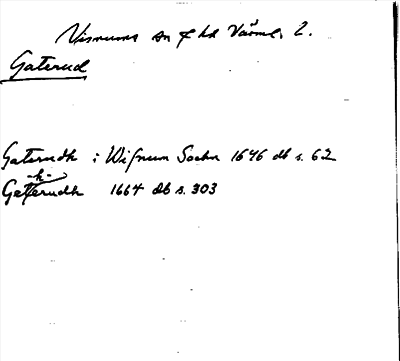 Visnums sn f hd Värml. l.
Gaterud
Gaterudh i Wisnum Sochn 1646 db s. 62
-h-
Gatterudh 1664 db s. 303